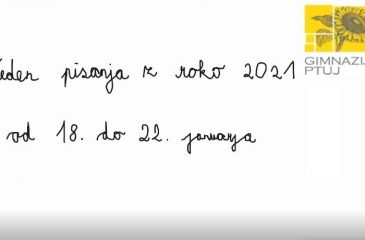 teden pisanja z roko 2021
od 18. do 22. januarja
GIMNAZIJ
PTUJ